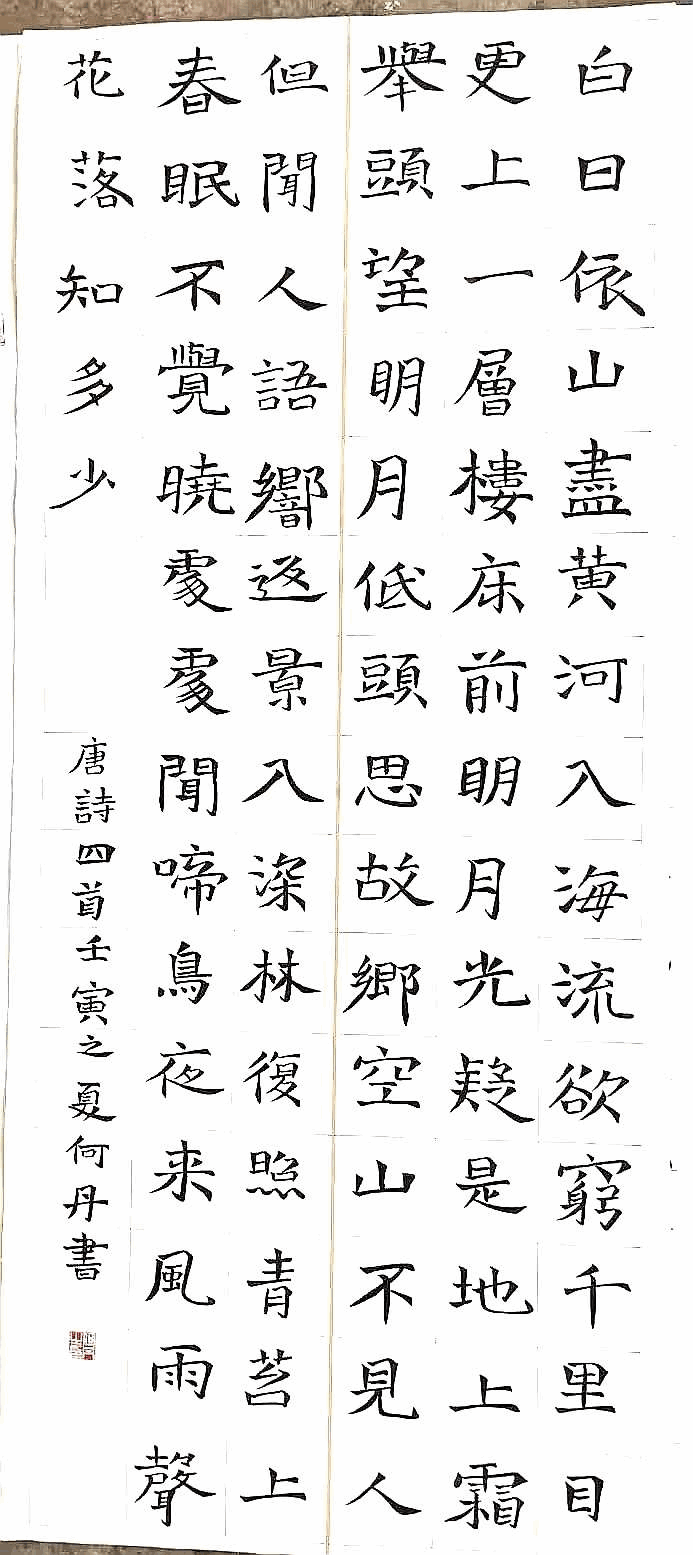 白日依山盡黄河入海流欲窮千里目
更上一層樓床前明月光疑是地上霜
舉頭望明月低頭思故鄉空山不見人
但聞人語響返景入深林復照青苔上
春眠不覺曉處處聞啼鳥夜来風雨聲
花落知多少
唐詩四首壬寅之夏何丹書